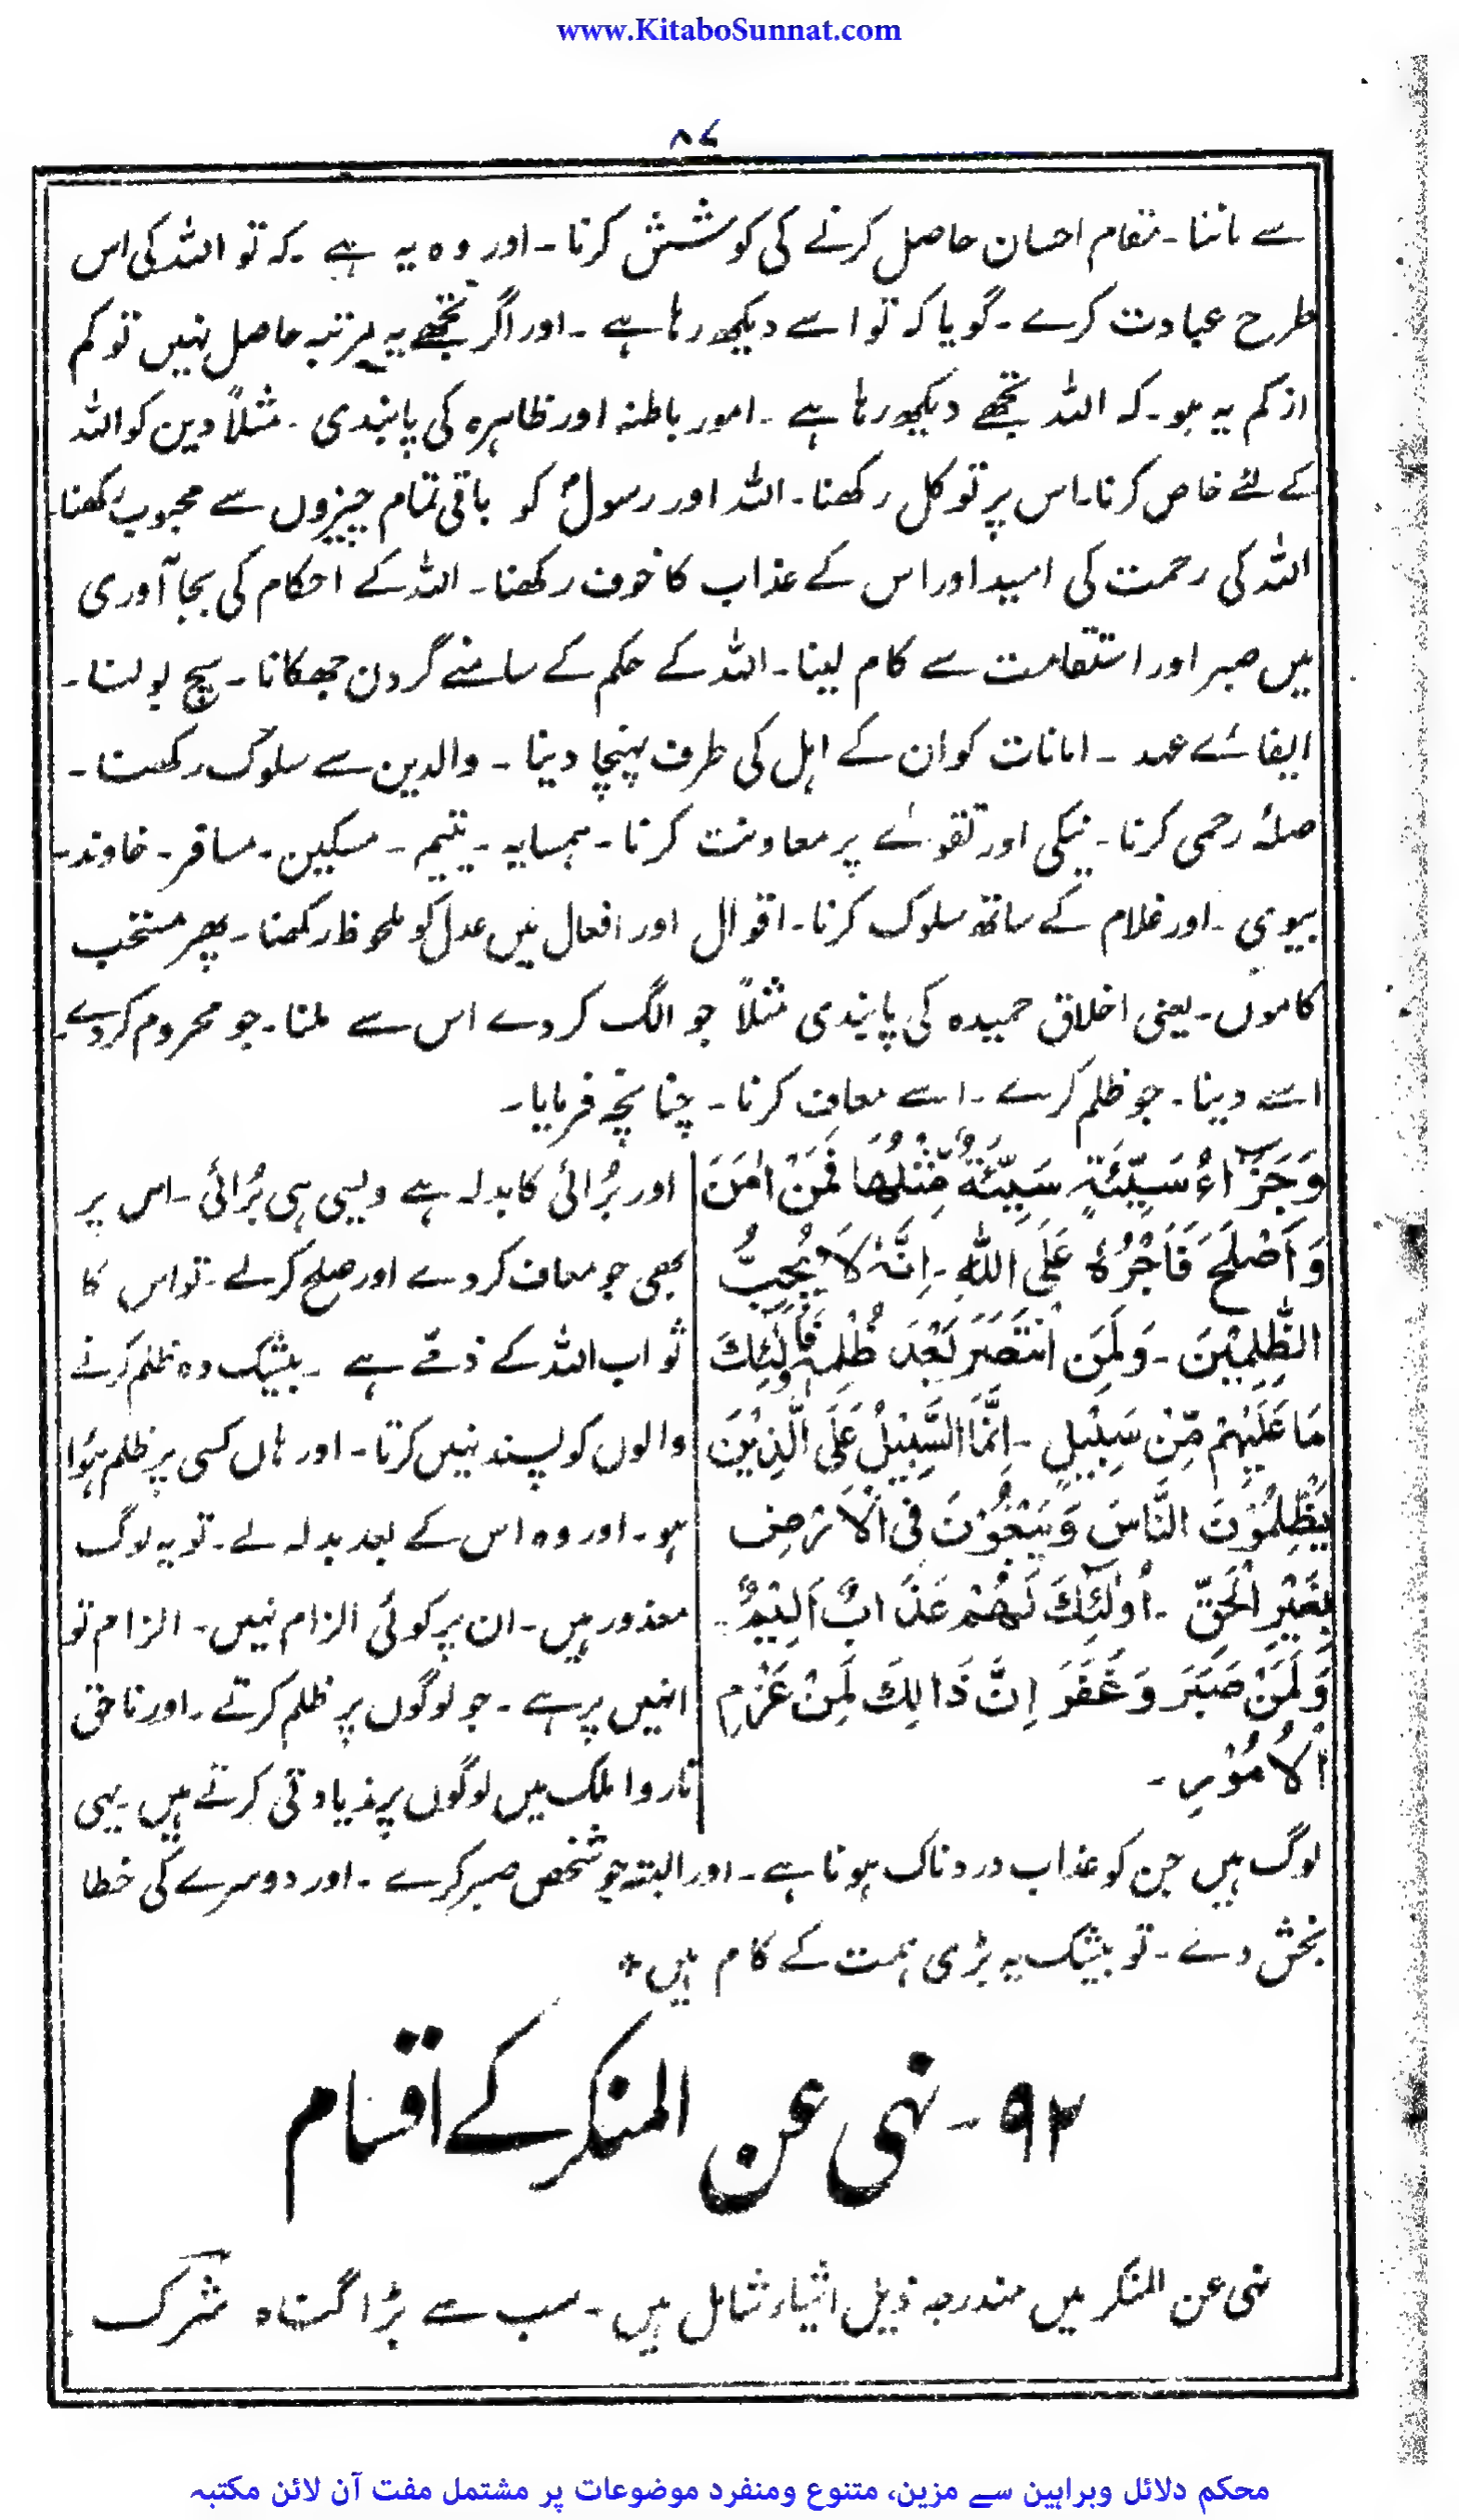 www.KitaboSunnat.com
۸۷
سے ماننا۔ مقام احسان حاصل کرنے کی کوشش کرنا۔ اور وہ یہ ہے ۔ کہ تو اللہ کی اس
طرح عبادت کرے ۔ گویا کہ تو اسے دیکھ رہا ہے ۔ اور اگر تجھے یہ مرتبہ حاصل نہیں تو کم
از کم یہ ہو۔ کہ اللہ تجھے دیکھ رہا ہے ۔ امور باطنہ اور ظاہرہ کی پابندی ۔ مثلاً دین کو اللہ
کے لئے خاص کرنا۔ اس پر توکل رکھنا۔ اللہ اور رسولؐ کو باقی تمام چیزوں سے محبوب رکھنا۔
اللہ کی رحمت کی امید اور اس کے عذاب کا خوف رکھنا۔ اللہ کے احکام کی بجا آوری
میں صبر اور استقامت سے کام لینا۔ اللہ کے حکم کے سامنے گردن جھکانا۔ سچ بولنا۔
ایفائے عہد ۔ امانات کو ان کے اہل کی طرف پہنچا دینا ۔ والدین سے سلوک رکھنا ۔
صلۂ رحمی کرنا۔ نیکی اور تقوےٰ پر معاونت کرنا۔ ہمسایہ ۔ یتیم ۔ مسکین۔ مسافر۔ خاوند۔
بیوی ۔ اور غلام کے ساتھ سلوک کرنا۔ اقوال اور افعال میں عدل کو ملحوظ رکھنا۔ پھر منتخب
کاموں۔ یعنی اخلاق حمیدہ کی پابندی مثلاً جو الگ کردے اس سے ملنا۔ جو محروم کردے۔
اسے دینا۔ جو ظلم کرے ۔ اسے معاف کرنا۔ چنانچہ فرمایا۔
وَجَزٰٓاءُ سَيِّئَةٍ سَيِّئَةٌ مِّثْلُهَا فَمَنْ اٰمَنَ
وَاَصْلَحَ فَاَجْرُهٗ عَلَى اللهِ ۔ اِنَّهٗ لَا يُحِبُّ
الظّٰلِمِيْنَ ۔ وَلَمَنِ انْتَصَرَ بَعْدَ ظُلْمِهٖ فَاُولٰٓئِكَ
مَا عَلَيْهِمْ مِّنْ سَبِيْلٍ ۔ اِنَّمَا السَّبِيْلُ عَلَى الَّذِيْنَ
يَظْلِمُوْنَ النَّاسَ وَيَبْغُوْنَ فِى الْاَرْضِ
بِغَيْرِ الْحَقِّ ۔ اُولٰٓئِكَ لَهُمْ عَذَابٌ اَلِيْمٌ ۔
وَلَمَنْ صَبَرَ وَغَفَرَ اِنَّ ذَالِكَ لَمِنْ عَزْمِ
الْاُمُوْرِ ۔
اور بُرائی کا بدلہ ہے ویسی ہی بُرائی ۔ اس پر
بھی جو معاف کردے اور صلح کرلے ۔ تو اس کا
ثواب اللہ کے ذمّے ہے ۔ بیشک وہ ظلم کرنے
والوں کو پسند نہیں کرتا۔ اور ہاں کسی پر ظلم ہوَا
ہو۔ اور وہ اس کے بعد بدلہ لے ۔ تو یہ لوگ
معذور ہیں۔ ان پر کوئی الزام نہیں۔ الزام تو
انہیں پر ہے ۔ جو لوگوں پر ظلم کرتے ۔ اور ناحق
ناروا ملک میں لوگوں پر زیادتی کرتے ہیں ۔ یہی
لوگ ہیں جن کو عذاب دردناک ہونا ہے ۔ اور البتہ جو شخص صبر کرے ۔ اور دوسرے کی خطا
بخش دے ۔ تو بیشک یہ بڑی ہمت کے کام ہیں +
۹۲ ۔ نہی عن المنکر کے اقسام
نہی عن المنکر میں مندرجہ ذیل اشیاء شامل ہیں ۔ سب سے بڑا گناہ شرک
محکم دلائل وبراہین سے مزین، متنوع ومنفرد موضوعات پر مشتمل مفت آن لائن مکتبہ